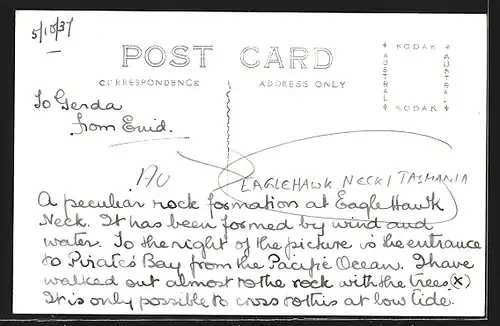 5/10/37
POST CARD
CORRESPONDENCE
ADDRESS ONLY
KODAK
AUSTRAL
AUSTRAL
KODAK
To Gerda
from Enid.
EAGLEHAWK NECK / TASMANIA
A peculiar rock formation at Eagle Hawk
Neck. It has been formed by wind and
water. To the right of the picture is the entrance
to Pirate's Bay from the Pacific Ocean. I have
walked out almost to the rock with the trees (x)
It is only possible to cross to this at low tide.